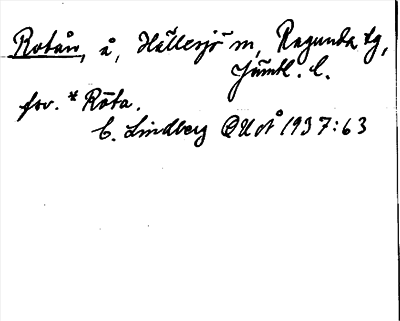 Rotån, å, Hällesjö sn, Ragunda tg,
Jämtl. l.
for. * Rōta.
C. Lindberg @UoÅ 1937:63